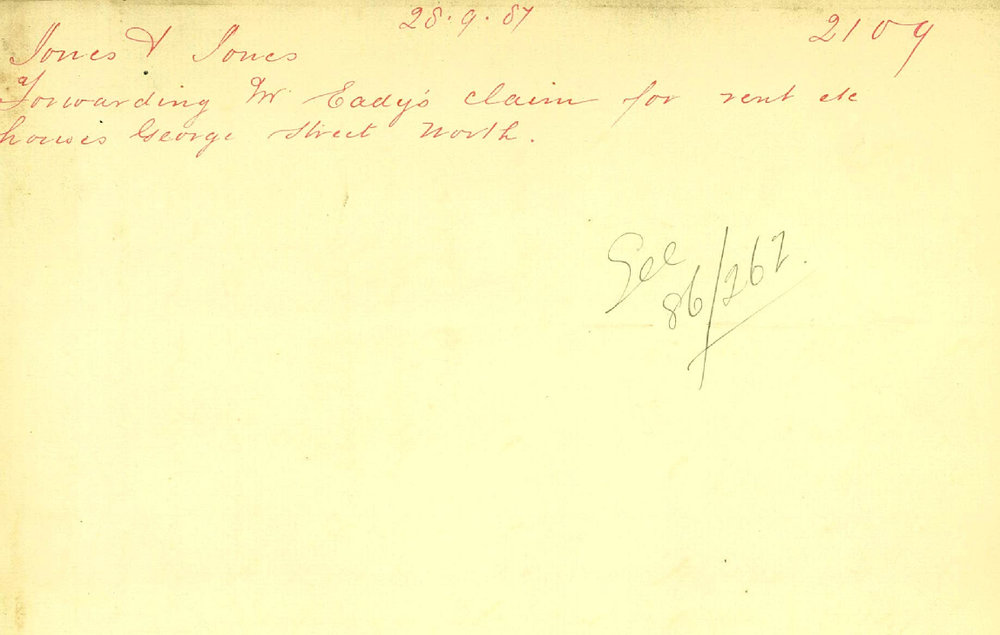 28.9.87
2109
Jones & Jones
Forwarding Mr Eady's claim for rent etc
houses George Street North.
See
86/262.